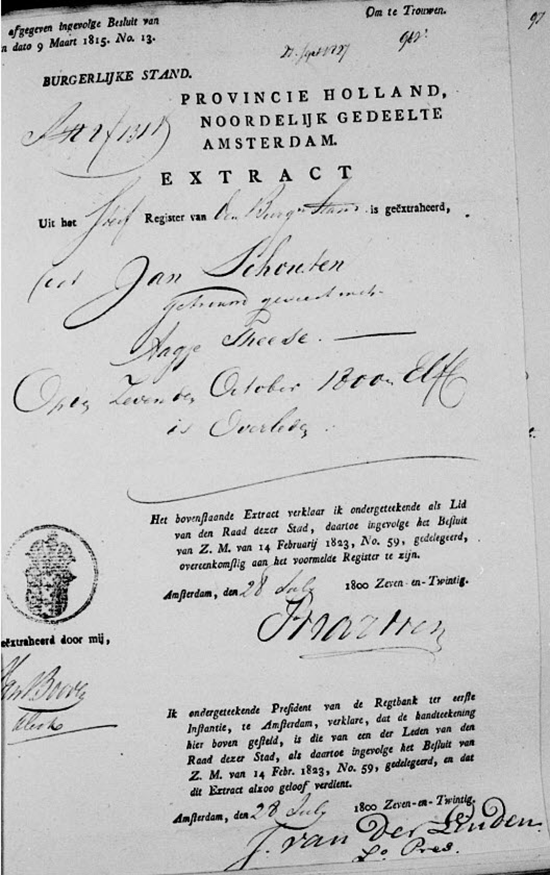 afgegeven ingevolge Besluit van
n dato 9 Maart 1815. No. 13.
Om te Trouwen.
BURGERLIJKE STAND.
PROVINCIE HOLLAND,
NOORDELIJK GEDEELTE
AMSTERDAM.
EXTRACT
Uit het Sterf Register van den Burger Stand is geëxtraheerd,
dat Jan Schouten
getrouwd geweest met
Aagje Theese.
Op den Zevenden October 1800 en Elf
is Overleden
Het bovenstaande Extract verklaar ik ondergeteekende als Lid
van den Raad dezer Stad, daartoe ingevolge het Besluit
van Z. M. van 14 Februarij 1823, No. 59, gedelegeerd,
overeenkomstig aan het voormelde Register te zijn.
Amsterdam, den 28 July 1800 Zeven-en-Twintig.
eëxtraheerd door mij,
Ik ondergeteekende President van de Regtbank ter eerste
Instantie, te Amsterdam, verklare, dat de handteekening
hier boven gesteld, is die van een der Leden van den
Raad dezer Stad, als daartoe ingevolge het Besluit van
Z. M. van 14 Febr. 1823, No. 59, gedelegeerd, en dat
dit Extract alzoo geloof verdient.
Amsterdam, den 28 July 1800 Zeven-en-Twintig.
J. van Der Linden.
Lo. Pres.